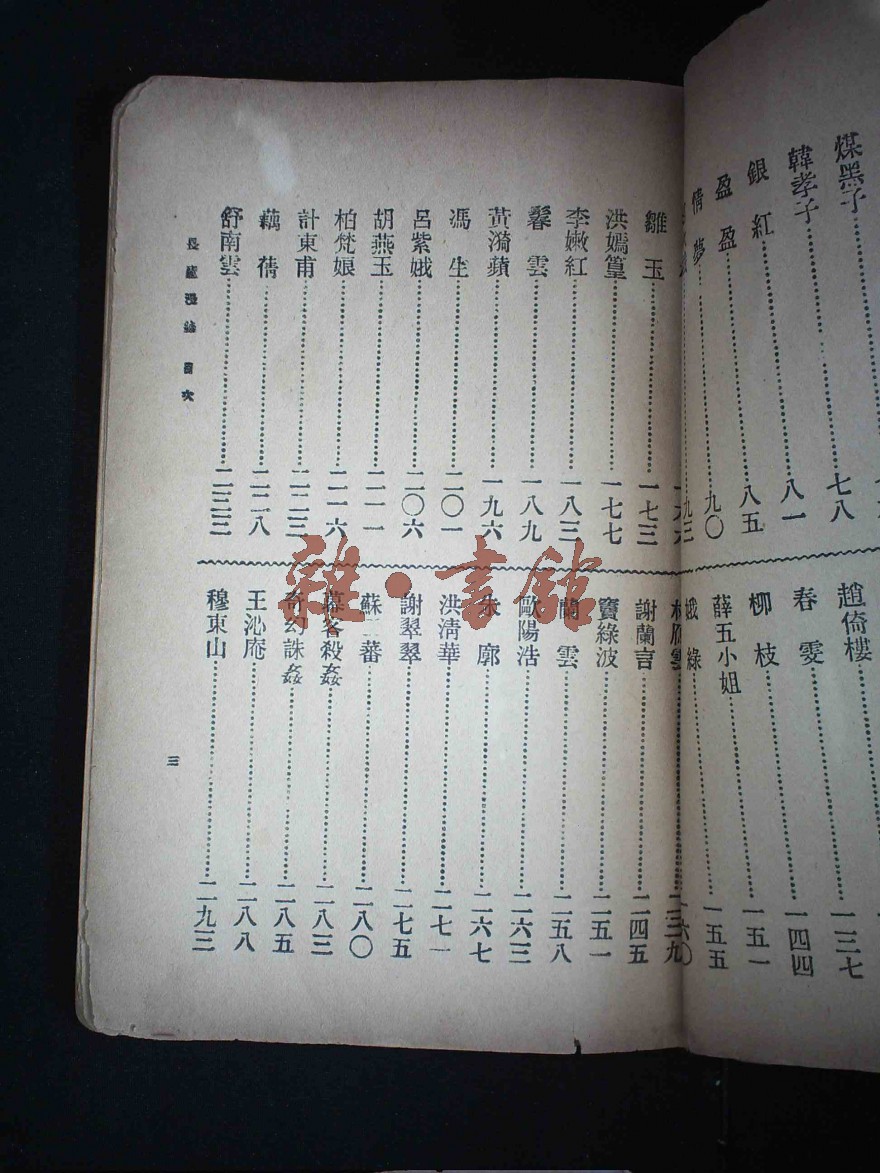 煤黑子……七八
韓孝子……八一
銀紅……八五
盈盈……九〇
情夢……九三
趙倚樓……一三七
春雯……一四四
柳枝……一五一
薛五小姐……一五五
綠……一六〇
雛玉……一七三
洪嫣篁……一七七
李嫩紅……一八三
鬟雲……一八九
黃漪蘋……一九六
馮生……二〇一
呂紫娥……二〇六
胡燕玉……二一一
柏梵娘……二一六
計東甫……二二三
藕蒨……二二八
舒南雲……二三三
謝蘭言……二四五
竇綠波……二五一
蘭雲……二五八
歐陽浩……二六三
朱廓……二六七
洪清華……二七一
謝翠翠……二七五
蘇二蕃……二八〇
幕客殺姦……二八三
奇幻誅姦……二八五
王沁庵……二八八
穆東山……二九三
目次
三
雜·書館